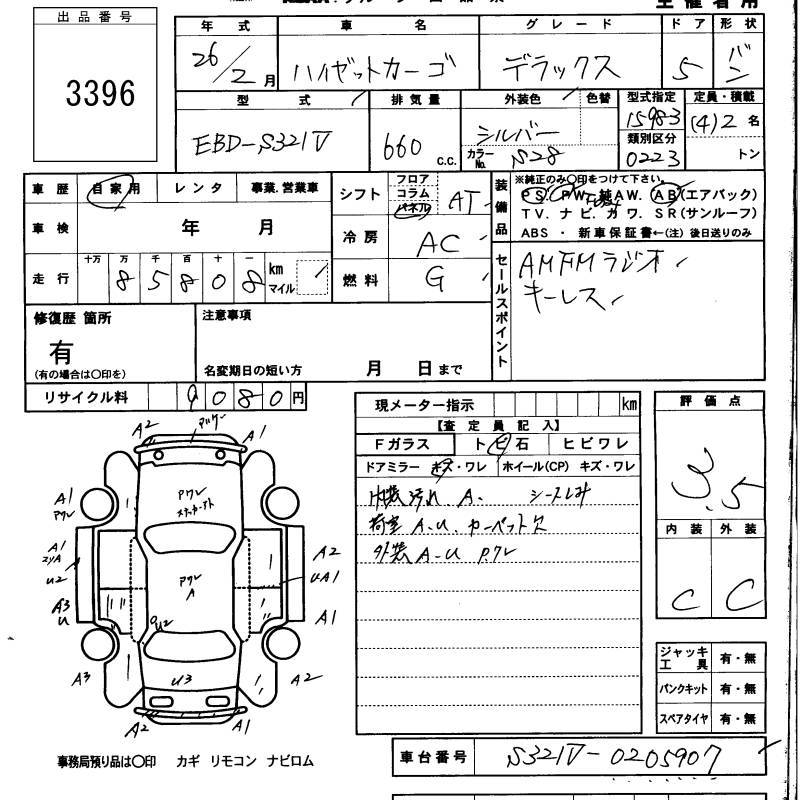 出品番号
3396
年式 車名 グレード ドア 形状
26/2月 ハイゼットカーゴ デラックス 5 バン
型式 排気量 外装色 色替 型式指定 定員・積載
EBD-S321V 660 c.c. シルバー 15983 (4)2名
カラーNo. S28 類別区分 0223 トン
車歴 自家用 レンタ 事業.営業車
シフト フロア コラム パネル AT
装備品 ※純正のみ〇印をつけて下さい。
PS. PW. 純AW. AB(エアバック)
TV. ナビ. カワ. SR(サンルーフ)
ABS ・ 新車保証書←(注) 後日送りのみ
車検 年 月
冷房 AC
走行 十万 万 千 百 十 一 km マイル
8 5 8 0 8
燃料 G
セールスポイント
AMFMラジオ
キーレス
修復歴 箇所
有
(有の場合は〇印を)
注意事項
名変期日の短い方 月 日まで
リサイクル料 9080円
現メーター指示 km
【査定員記入】
Fガラス トビ石 ヒビワレ
ドアミラー キズ・ワレ ホイール(CP) キズ・ワレ
内装汚れ A. シートしみ
荷室 A.U. カーペット欠
外装 A-U Pクレ
評価点
3.5
内装 外装
C C
ジャッキ工具 有・無
パンクキット 有・無
スペアタイヤ 有・無
A2 A1
A1 Pクレ
Pクレ
A1
U2
A2
UA1
Pクレ A
A3 U
A1
U2
A3
U3
A2
A2 A1
事務局預り品は〇印 カギ リモコン ナビロム
車台番号 S321V-0205907